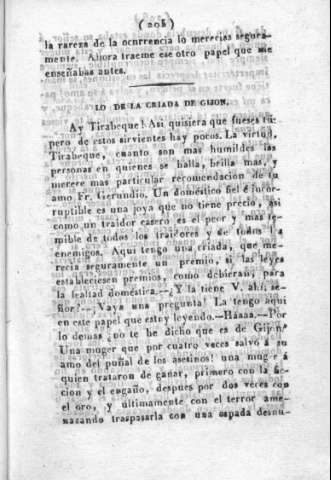 ( 205 )
la rareza de la ocnrrencia lo merecias segura-
mente. Ahora traeme ese otro papel que me
enseñabas antes.
LO DE LA CRIADA DE GIJON.
Ay Tirabeque! Asi quisiera que fueses tú;
pero de estos sirvientes hay pocos. La virtud,
Tirabeque, cuanto son mas humildes las
personas en quienes se halla, brilla mas, y
merece mas particular recomendacion de tu
amo Fr. Gerundio. Un doméstico fiel é incor-
ruptible es una joya que no tiene precio, asi
como un traidor casero es el peor y mas te-
mible de todos los traidores y de todos los
enemigos. Aqui tengo una criada, que me-
recia seguramente un premio, si las leyes
estableciesen premios, como debieran, para
la lealtad doméstica.—¿Y la tiene V. ahi, se-
ñor?—¡Vaya una pregunta! La tengo aqui
en este papel que estoy leyendo.—Háaaa.—Por
lo demas ¿no te he dicho que es de Gijon?
Una muger que por cuatro veces salvó á su
amo del puñal de los asesinos! una muger á
quien trataron de ganar, primero con la fic-
cion y el engaño, despues por dos veces con
el oro, y últimamente con el terror ame-
nazando traspasarla con una espada desnu-